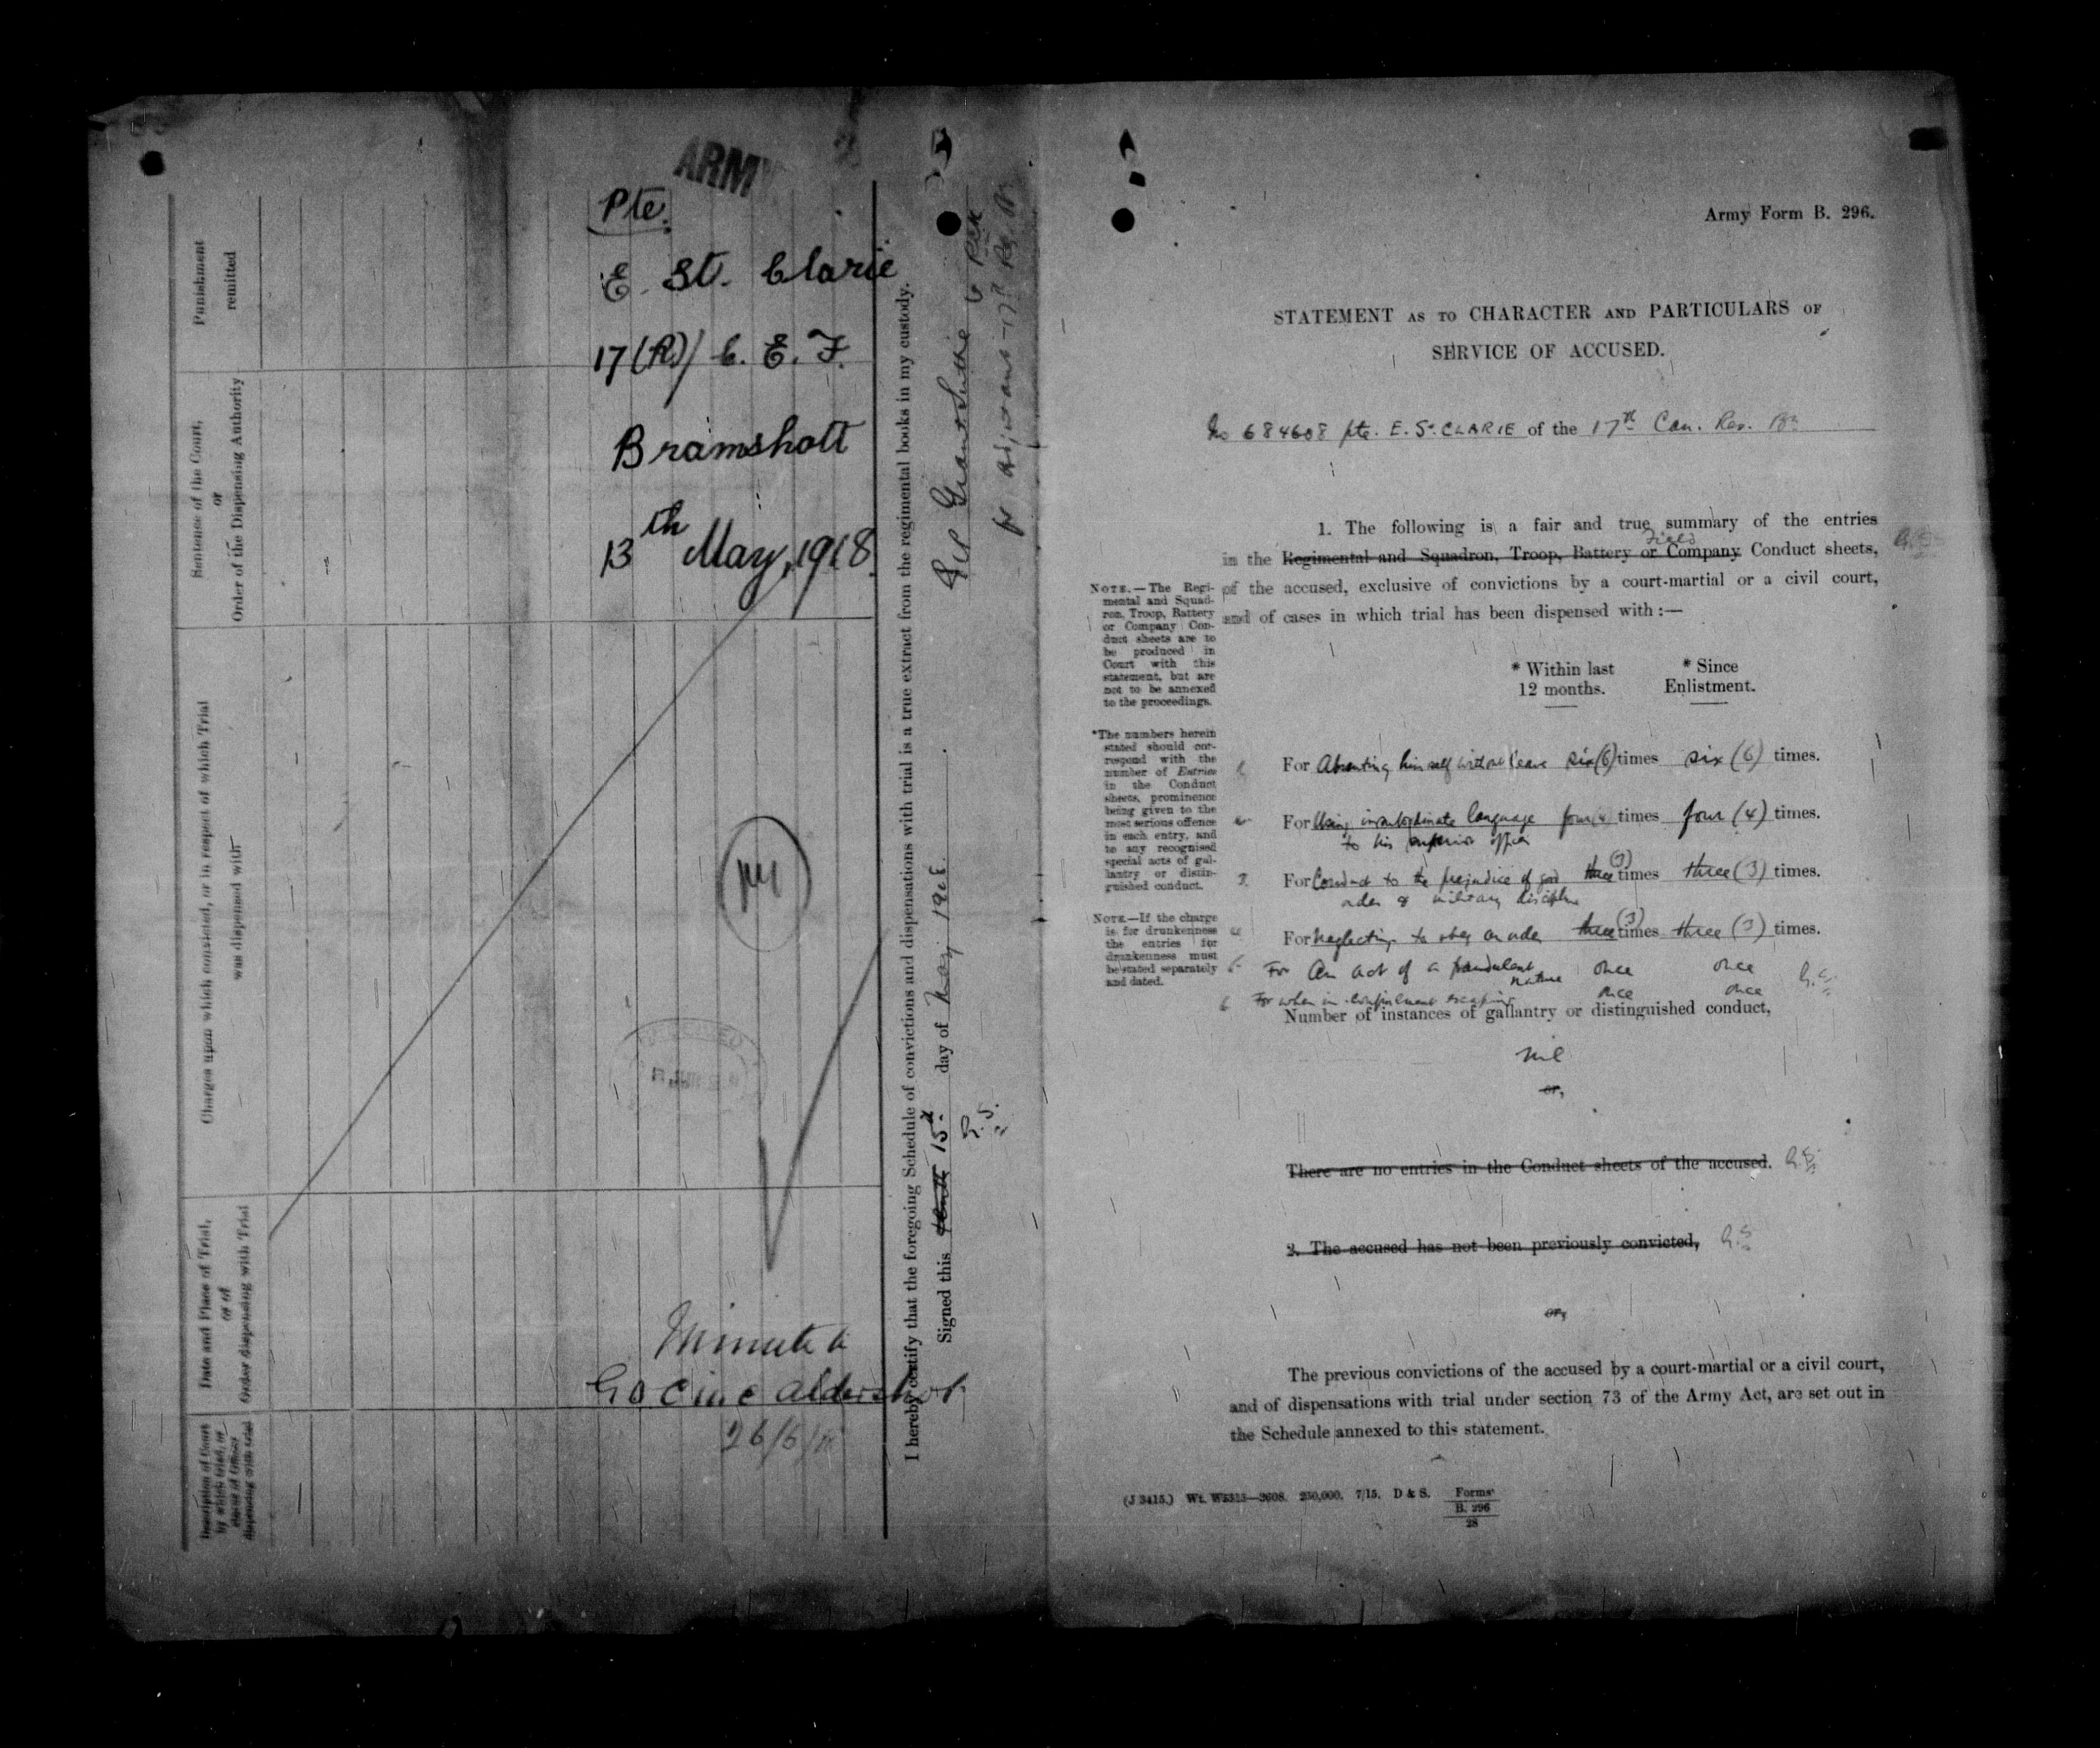 ARMY
Pte.
E. St. Clarie
17(R)/ C. E. F.
Bramshott
13th May, 1918.
Minute to
G O C in C Aldershot
26/5/18
Punishment
remitted
Sentence of the Court,
or
Order of the Dispensing Authority
Charges upon which convicted, or in respect of which Trial
was dispensed with
Date and Place of Trial,
or of
Order dispensing with Trial
Description of Court
by which tried, or
dispensing with trial
I hereby certify that the foregoing Schedule of convictions and dispensations with trial is a true extract from the regimental books in my custody.
Signed this 15th day of May 1918.
G.S.
Adjutant 17th
Army Form B. 296.
STATEMENT AS TO CHARACTER AND PARTICULARS OF
SERVICE OF ACCUSED.
No 684608 pte. E. St. CLARIE of the 17th Can. Res. Bn
1. The following is a fair and true summary of the entries
Field
in the Regimental and Squadron, Troop, Battery or Company Conduct sheets, G.S.
of the accused, exclusive of convictions by a court-martial or a civil court,
and of cases in which trial has been dispensed with :—
NOTE.—The Regi-
mental and Squad-
ron, Troop, Battery
or Company Con-
duct sheets are to
be produced in
Court with this
statement, but are
not to be annexed
to the proceedings.
*The numbers herein
stated should cor-
respond with the
number of Entries
in the Conduct
sheets, prominence
being given to the
most serious offence
in each entry, and
to any recognised
special acts of gal-
lantry or distin-
guished conduct.
NOTE—If the charge
is for drunkenness
the entries for
drunkenness must
be stated separately
and dated.
* Within last * Since
12 months. Enlistment.
For Absenting himself without leave six (6) times six (6) times.
For Using insubordinate language four (4) times four (4) times.
to his superior officer
3. For Conduct to the prejudice of good three (3) times three (3) times.
order & military discipline
For neglecting to obey an order three (3) times three (3) times.
5 For An act of a fraudulent nature once once G.S.
6 For when in confinement escaping once once
Number of instances of gallantry or distinguished conduct,
nil
or,
There are no entries in the Conduct sheets of the accused. G.S.
2. The accused has not been previously convicted, G.S
or,
The previous convictions of the accused by a court-martial or a civil court,
and of dispensations with trial under section 73 of the Army Act, are set out in
the Schedule annexed to this statement.
(J 3415.) Wt. W5325—3608. 250,000. 7/15. D & S. Forms
B. 296
28